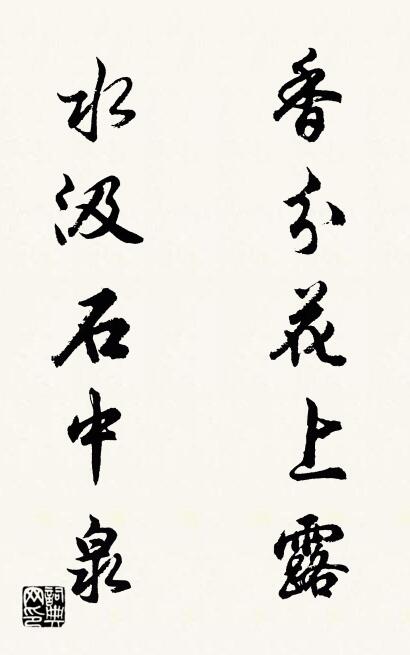 香分花上露
水汲石中泉
詞典网印